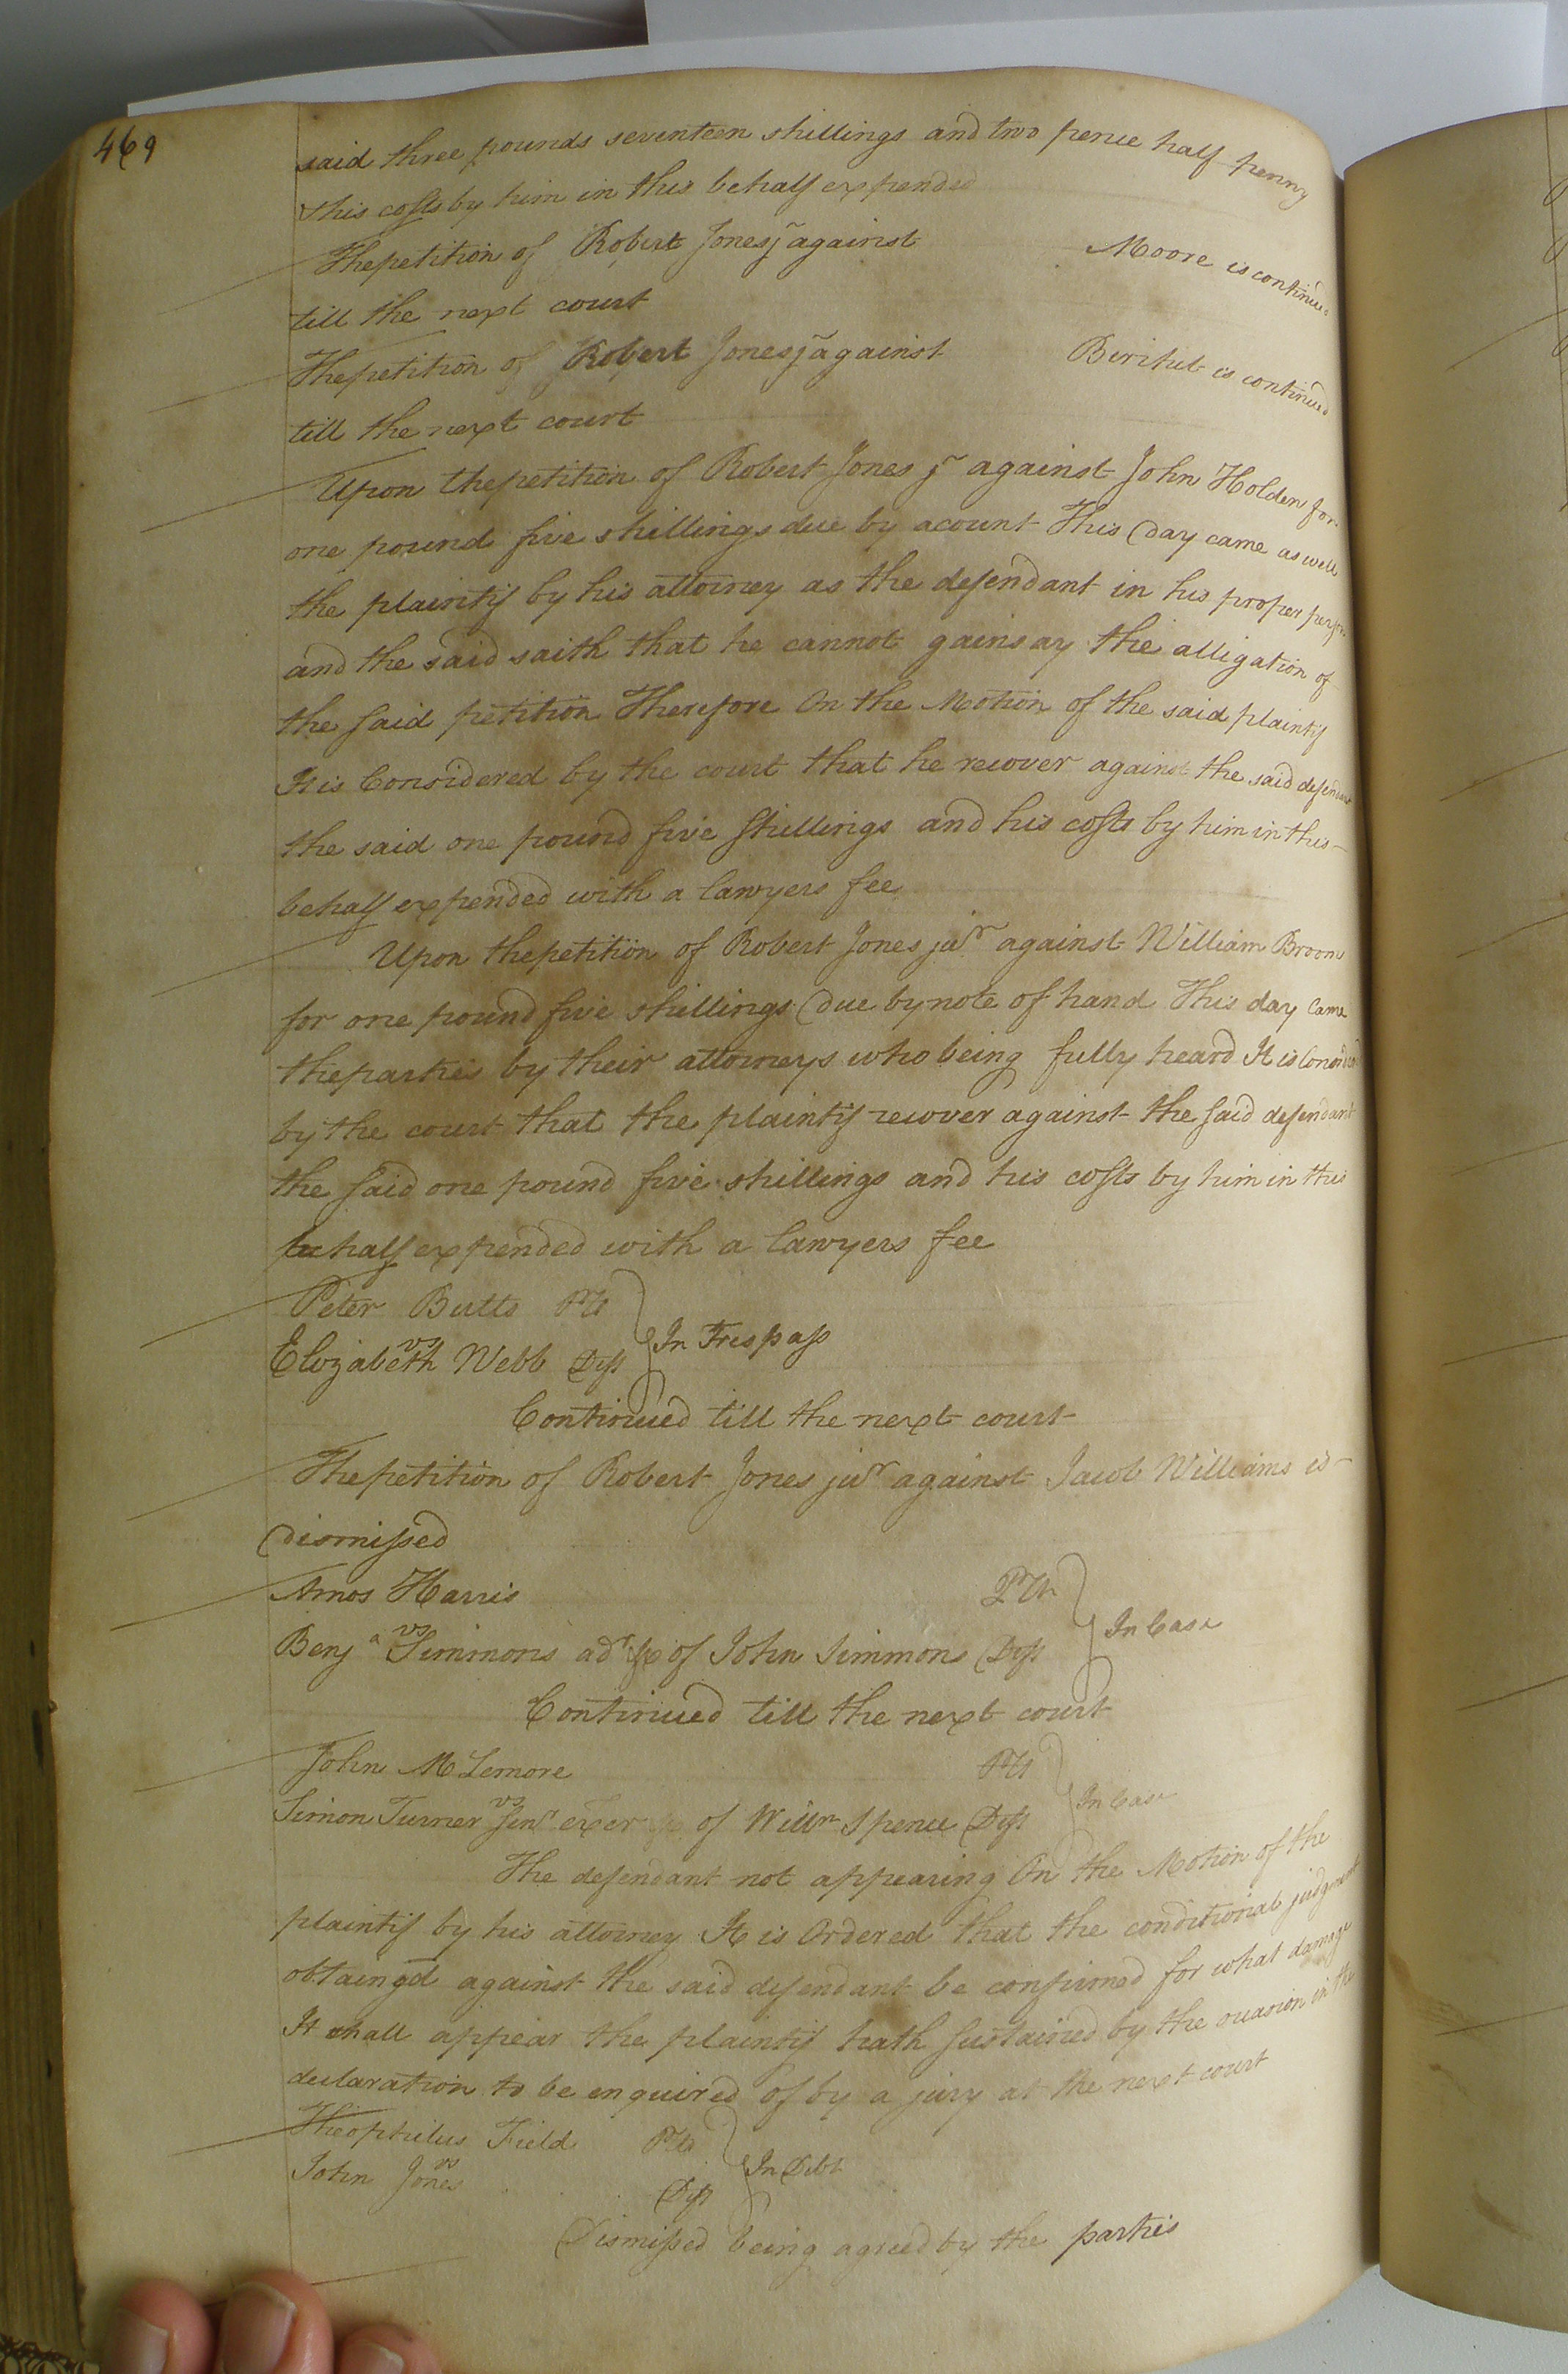 469
said three pounds seventeen shillings and two pence half penny
& his costs by him in this behalf expended
The petition of Robert Jones jr against Moore is continued
till the next court
The petition of Robert Jones jr against is continued
till the next court
Upon the petition of Robert Jones jr against John Holden for
one pound five shillings due by acount This day came as well
the plaintif by his attorney as the defendant in his proper person
and the said saith that he cannot gainsay the alligation of
the said petition Therefore On the Motion of the said plaintif
It is Considered by the court that he recover against the said defendant
the said one pound five shillings and his costs by him in this
behalf expended with a lawyers fee
Upon the petition of Robert Jones junr against William Broom
for one pound five shillings due by note of hand This day Came
the parties by their attorneys who being fully heard It is Considered
by the court that the plaintif recover against the said defendant
the said one pound five shillings and his costs by him in this
behalf expended with a lawyers fee
Peter Butts Plt
vs In Trespass
Elizabeth Webb Deft
Continued till the next court
The petition of Robert Jones junr against Jacob Williams is
dismissed
Amos Harris Plt
vs In Case
Benja Simmons adr &c of John Simmons Deft
Continued till the next court
John McLemore Plt
vs In Case
Simon Turner Senr exer &c of Willm Spence Deft
The defendant not appearing On the Motion of the
plaintif by his attorney It is Ordered that the conditional judgment
obtained against the said defendant be confirmed for what damage
It shall appear the plaintif hath sustained by the ocasion in the
declaration to be enquired of by a jury at the next court
Theophilus Field Plt
vs In Debt
John Jones Deft
Dismissed being agreed by the parties